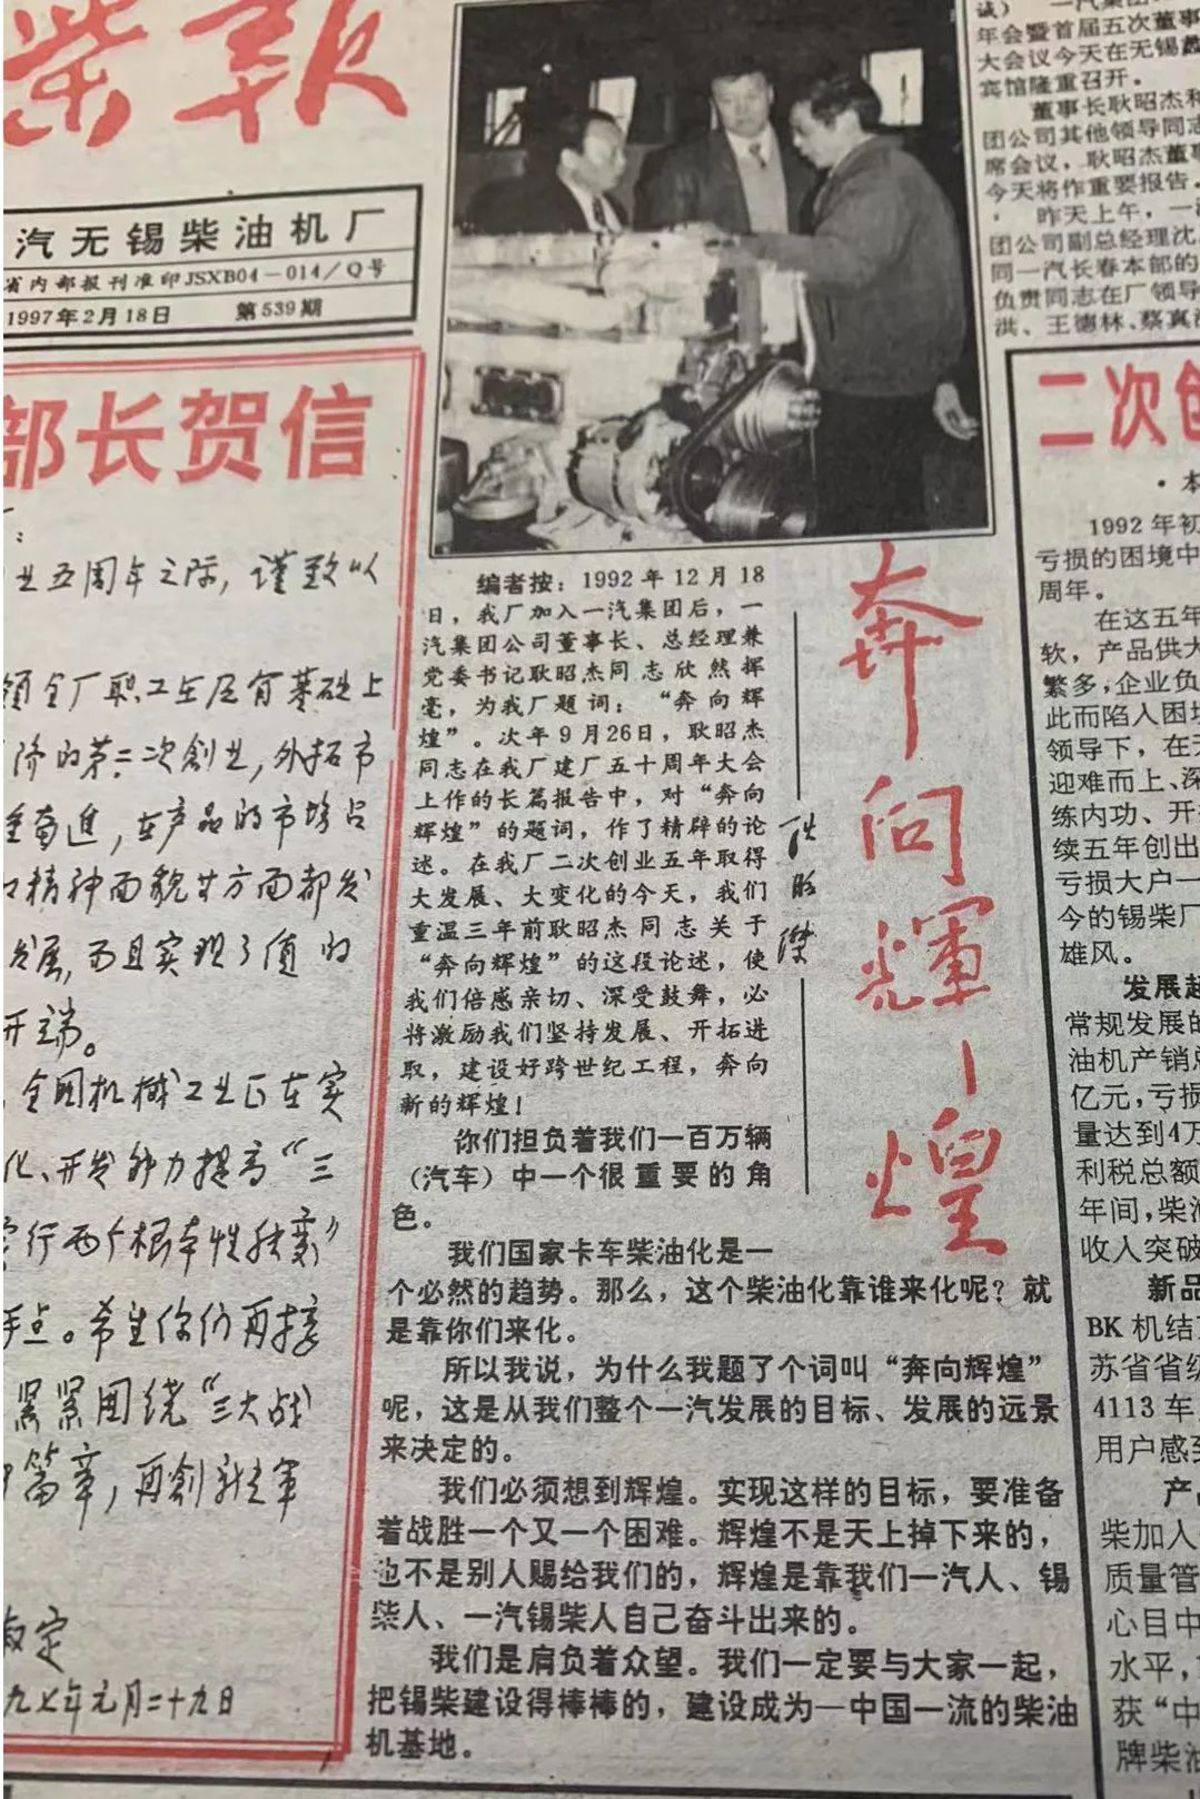 柴报
汽无锡柴油机厂
省内部报刊准印JSXB04-014/Q号
1997年2月18日 第539期
部长贺信
:
业五周年之际,谨致以
领全厂职工在原有基础上
阶的第二次創业,外拓市
奋进,在产品的市场占
精神面貌廿方面都发
发展,而且实现了值的
开端。
全国机械工业正在实
化、开发能力提高“三
行两个根本性转变”
希望你们再接
紧紧围绕“三大战
篇章,再創新
九七年元月二十九日
编者按:1992年12月18
日,我厂加入一汽集团后,一
汽集团公司董事长、总经理兼
党委书记耿昭杰同志欣然挥
毫,为我厂题词:“奔向辉
煌”。次年9月26日,耿昭杰
同志在我厂建厂五十周年大会
上作的长篇报告中,对“奔向
辉煌”的题词,作了精辟的论
述。在我厂二次创业五年取得
大发展、大变化的今天,我们
重温三年前耿昭杰同志关于
“奔向辉煌”的这段论述,使
我们倍感亲切、深受鼓舞,必
将激励我们坚持发展、开拓进
取,建设好跨世纪工程,奔向
新的辉煌!
奔向輝煌
耿昭傑
你们担负着我们一百万辆
(汽车)中一个很重要的角
色。
我们国家卡车柴油化是一
个必然的趋势。那么,这个柴油化靠谁来化呢?就
是靠你们来化。
所以我说,为什么我题了个词叫“奔向辉煌”
呢,这是从我们整个一汽发展的目标、发展的远景
来决定的。
我们必须想到辉煌。实现这样的目标,要准备
着战胜一个又一个困难。辉煌不是天上掉下来的,
也不是别人赐给我们的,辉煌是靠我们一汽人、锡
柴人、一汽锡柴人自己奋斗出来的。
我们是肩负着众望。我们一定要与大家一起,
把锡柴建设得棒棒的,建设成为一中国一流的柴油
机基地。
诚) 一汽集团
年会暨首届五次董事
大会议今天在无锡
宾馆隆重召开。
董事长耿昭杰和
团公司其他领导同志
席会议,耿昭杰董事
今天将作重要报告。
昨天上午,一汽
团公司副总经理沈
同一汽长春本部的
负责同志在厂领导
洪、王德林、蔡真
二次创
·本
1992年初
亏损的困境中
周年。
在这五年
软,产品供大
繁多,企业负
此而陷入困境
领导下,在
迎难而上、深
练内功、开
续五年创出
亏损大户一
今的锡柴厂
雄风。
发展起
常规发展的
油机产销总
亿元,亏损
量达到4万
利税总额
年间,柴油
收入突破
新品
BK机结
苏省省级
4113车
用户感到
产品
柴加入
质量管
心目中
水平,
获“中
牌柴油